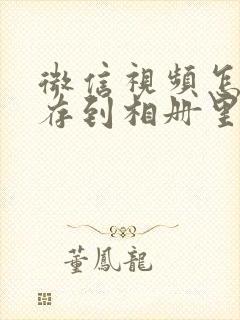 微信視頻怎
存到相册里
董鳳龍